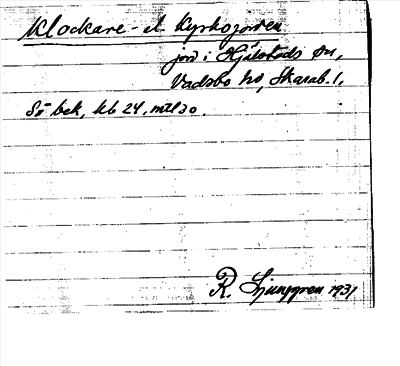 Klockare- el Kyrkojorden
jord i Hjälstads sn,
Vadsbo hd, Skarab. l,
Sö bek, kb 24, mtl 20.
R. Ljunggren 1931